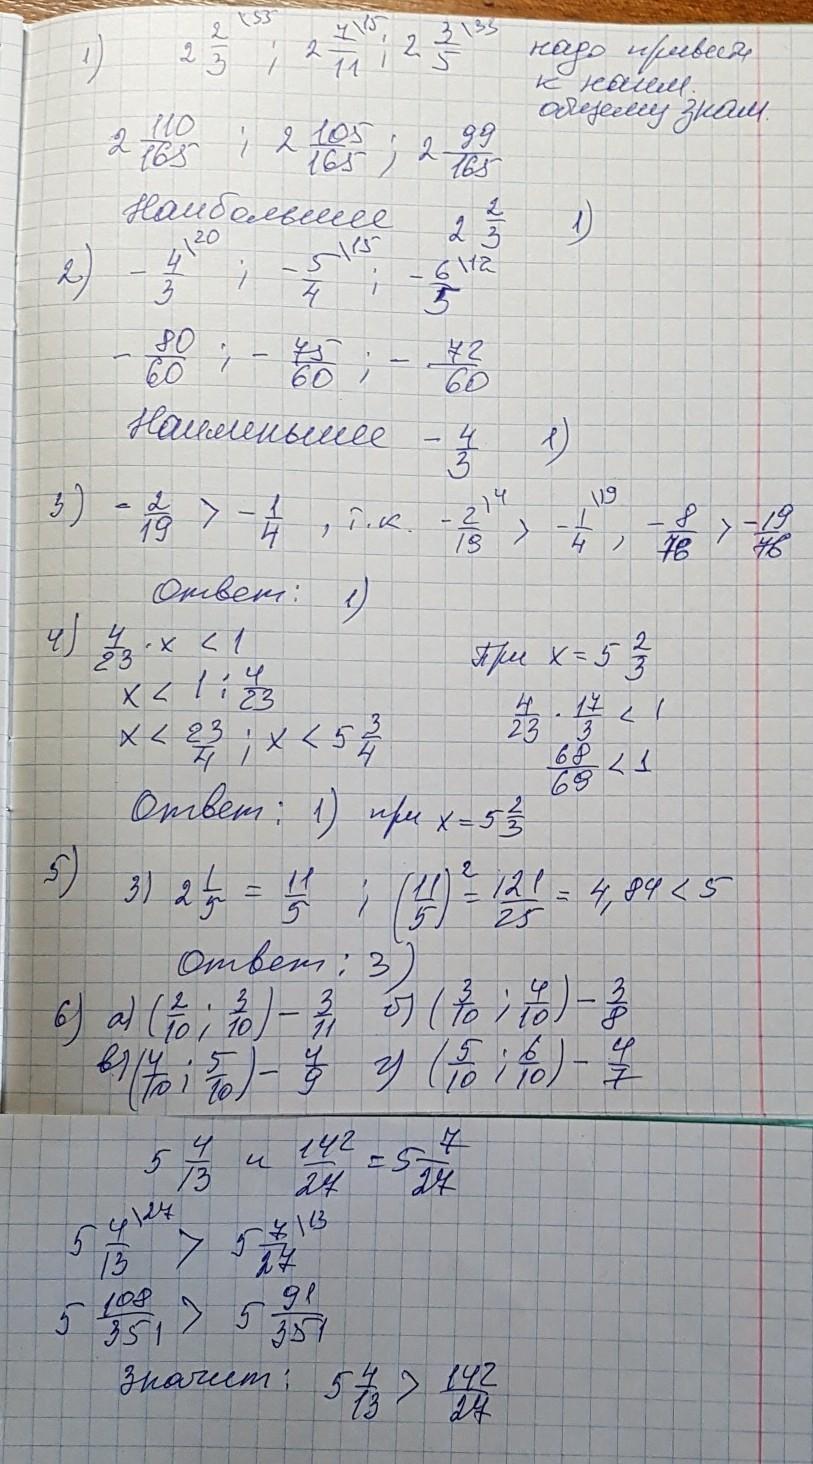 1) 2 2/3 \55 ; 2 7/11 \15 ; 2 3/5 \33 надо привести
к наим.
общему знам.
2 110/165 ; 2 105/165 ; 2 99/165
Наибольшее 2 2/3 1)
2) - 4/3 \20 ; - 5/4 \15 ; - 6/5 \12
- 80/60 ; - 75/60 ; - 72/60
Наименьшее - 4/3 1)
3) - 2/19 > - 1/4 , т.к. - 2/19 \4 > - 1/4 \19 , - 8/76 > - 19/76
Ответ: 1)
4) 4/23 · x < 1
x < 1 : 4/23
x < 23/4 ; x < 5 3/4
При x = 5 2/3
4/23 · 17/3 < 1
68/69 < 1
Ответ: 1) при x = 5 2/3
5) 3) 2 1/5 = 11/5 ; (11/5)² = 121/25 = 4,84 < 5
Ответ: 3)
6) а) (2/10 ; 3/10) - 3/11 б) (3/10 ; 4/10) - 3/8
в) (4/10 ; 5/10) - 4/9 г) (5/10 ; 6/10) - 4/7
5 4/13 и 142/27 = 5 7/27
5 4/13 \27 > 5 7/27 \13
5 108/351 > 5 91/351
Значит: 5 4/13 > 142/27